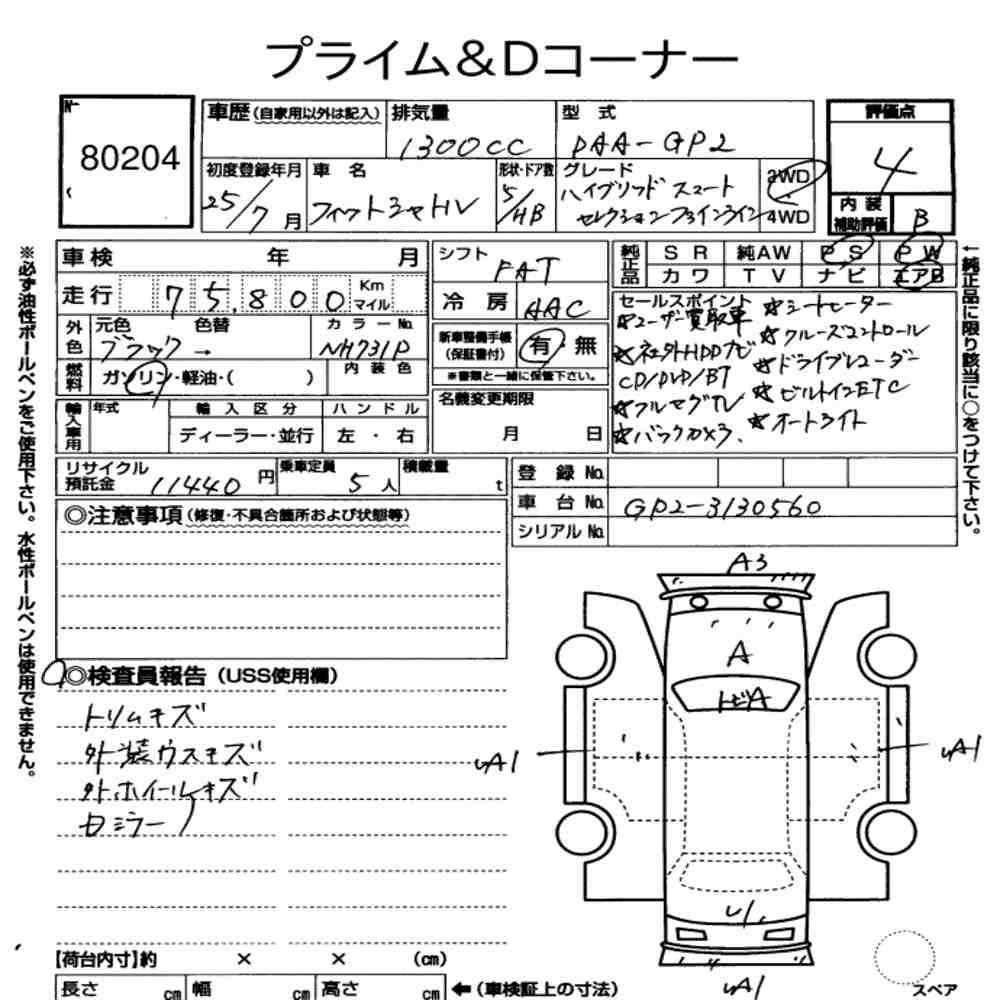 プライム&Dコーナー
№
80204
車歴(自家用以外は記入)
排気量
1300cc
型 式
DAA-GP2
評価点
4
初度登録年月
25/7月
車 名
フィットシャトルHV
形状・ドア数
5/HB
グレード
ハイブリッド スマート
セレクション ファインライン
2WD
4WD
内 装
補助評価
B
車検 年 月
走行 75,800 Km
マイル
シフト
FAT
冷 房
AAC
純正品
S R 純AW P S P W
カワ T V ナビ エアB
外色
元色 色替
ブラック →
カラーNo.
NH731P
燃料
ガソリン・軽油・( )
内 装 色
新車整備手帳
(保証書付)
有・無
※書類と一緒に保管下さい。
セールスポイント
☆ユーザー買取車
☆社外HDDナビ
CD/DVD/BT
☆フルセグTV
☆バックカメラ
☆シートヒーター
☆クルーズコントロール
☆ドライブレコーダー
☆ビルトインETC
☆オートライト
輸入車用
年式
輸 入 区 分
ハ ン ド ル
ディーラー・並行
左 ・ 右
名義変更期限
月 日
リサイクル
預託金 11440 円
乗車定員
5人
積載量
t
登 録 No.
車 台 No. GP2-3130560
シリアル No.
◎注意事項(修復・不具合箇所および状態等)
◎検査員報告(USS使用欄)
トリムキズ
外装ウスキズ
外ホイールキズ
ミラー
A3
A
トビA
A1
A1
A1
【荷台内寸】約 × × (cm)
長さ cm 幅 cm 高さ cm ←(車検証上の寸法)
スペア
※必ず油性ボールペンをご使用下さい。水性ボールペンは使用できません。
←純正品に限り該当に○をつけて下さい。